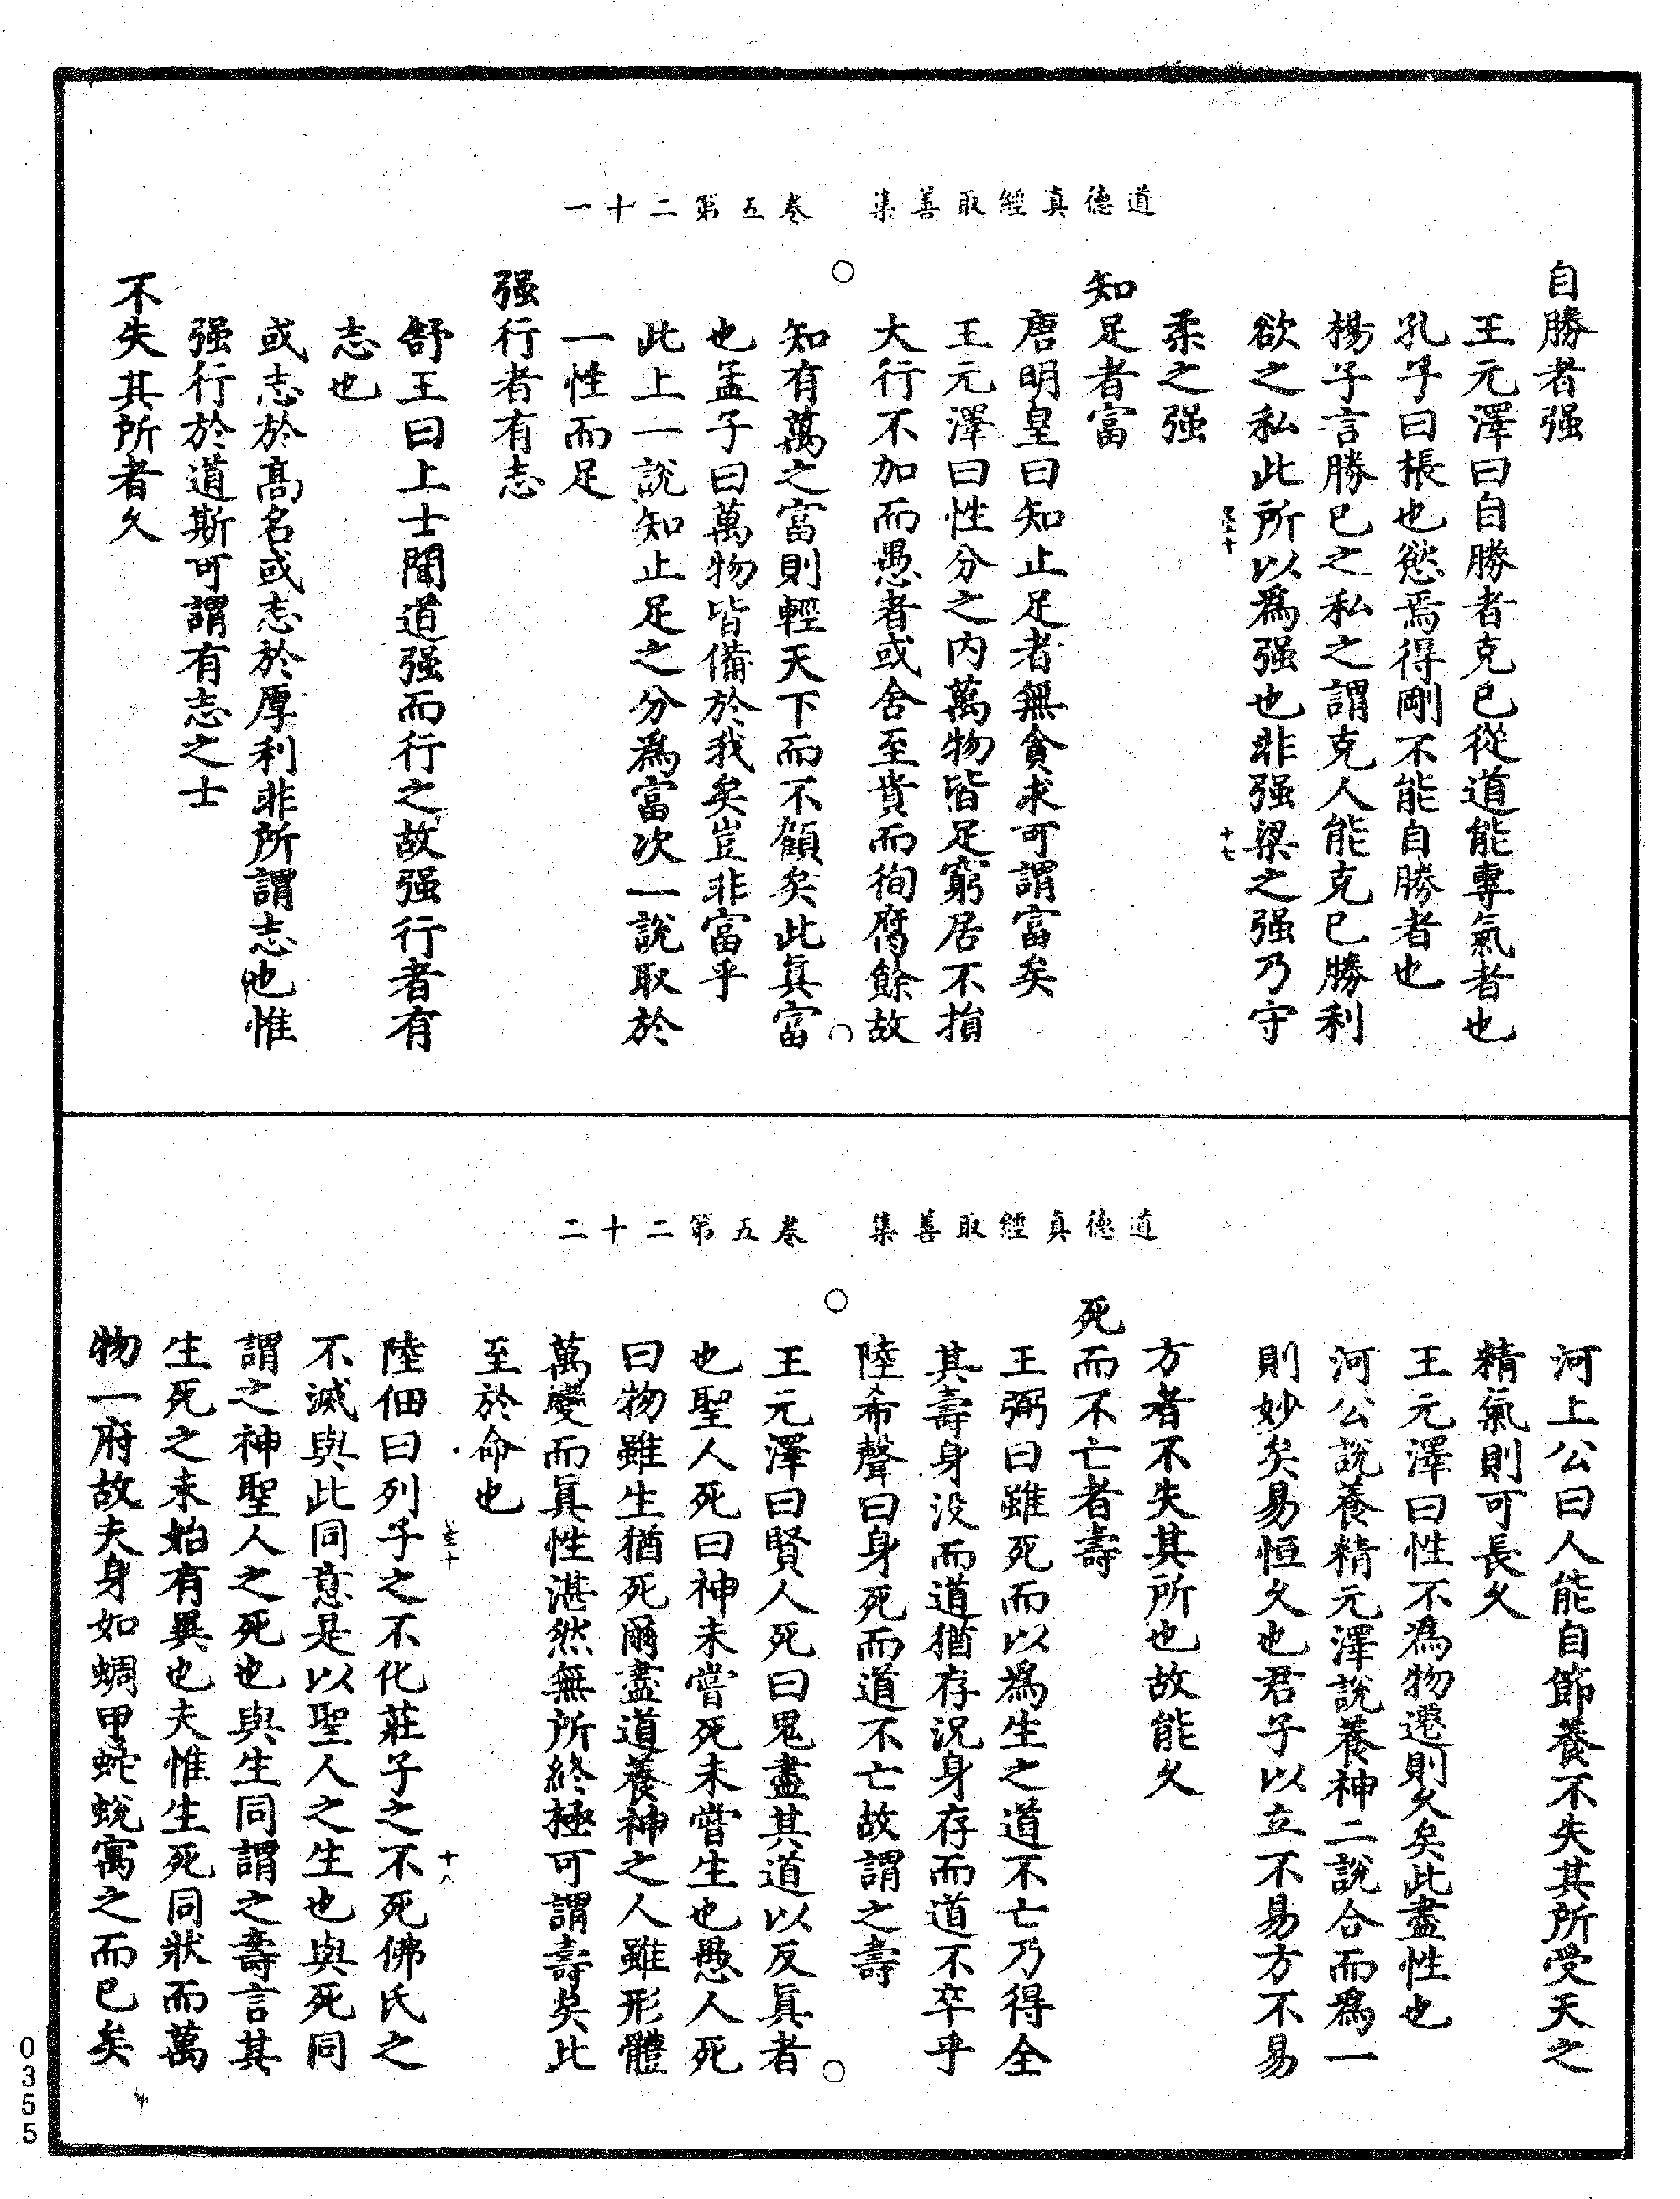 道德真經取善集　卷五第二十一
自勝者强
王元澤曰自勝者克已從道能專氣者也
孔子曰棖也慾焉得剛不能自勝者也
楊子言勝已之私之謂克人能克已勝利
欲之私此所以爲强也非强梁之强乃守
十七
柔之强
知足者富
唐明皇曰知止足者無貪求可謂富矣
王元澤曰性分之内萬物皆足窮居不損
大行不加而愚者或舍至貴而徇腐餘故
知有萬之富則輕天下而不顧矣此真富
也孟子曰萬物皆備於我矣豈非富乎
此上一說知止足之分爲富次一說取於
一性而足
强行者有志
舒王曰上士聞道强而行之故强行者有
志也
或志於髙名或志於厚利非所謂志也惟
强行於道斯可謂有志之士
不失其所者久
道德真經取善集　卷五第二十二
河上公曰人能自節養不失其所受天之
精氣則可長久
王元澤曰性不爲物遷則久矣此盡性也
河公說養精元澤說養神二說合而爲一
則妙矣易恒久也君子以立不易方不易
方者不失其所也故能久
死而不亡者壽
王弼曰雖死而以爲生之道不亡乃得全
其壽身没而道猶存況身存而道不卒乎
陸希聲曰身死而道不亡故謂之壽
王元澤曰賢人死曰鬼盡其道以反真者
也聖人死曰神未嘗死未嘗生也愚人死
曰物雖生猶死爾盡道養神之人雖形體
萬變而真性湛然無所終極可謂壽矣此
至於命也
十八
陸佃曰列子之不化莊子之不死佛氏之
不滅與此同意是以聖人之生也與死同
謂之神聖人之死也與生同謂之壽言其
生死之未始有異也夫惟生死同狀而萬
物一府故夫身如蜩甲蛇蛻寓之而已矣
0355